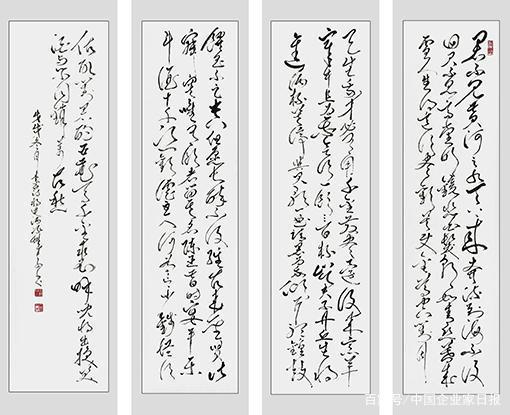 君不见黄河之水天上来奔流到海不復
回君不见高堂明镜悲白髮朝如青丝暮成
雪人生得意须尽欢莫使金樽空对月
天生我材必有用千金散尽還復来烹羊
宰牛且为乐会须一饮三百杯岑夫子丹丘生将
進酒杯莫停与君歌一曲请君为我倾耳听钟鼓
馔玉不足贵但愿长醉不復醒古来圣贤皆
寂寞唯有饮者留其名陈王昔时宴平乐
斗酒十千恣欢谑主人何为言少钱径须
沽取对君酌五花马千金裘呼儿将出换美
酒与尔同销万古愁
冬日
百家号/中国企业家日报